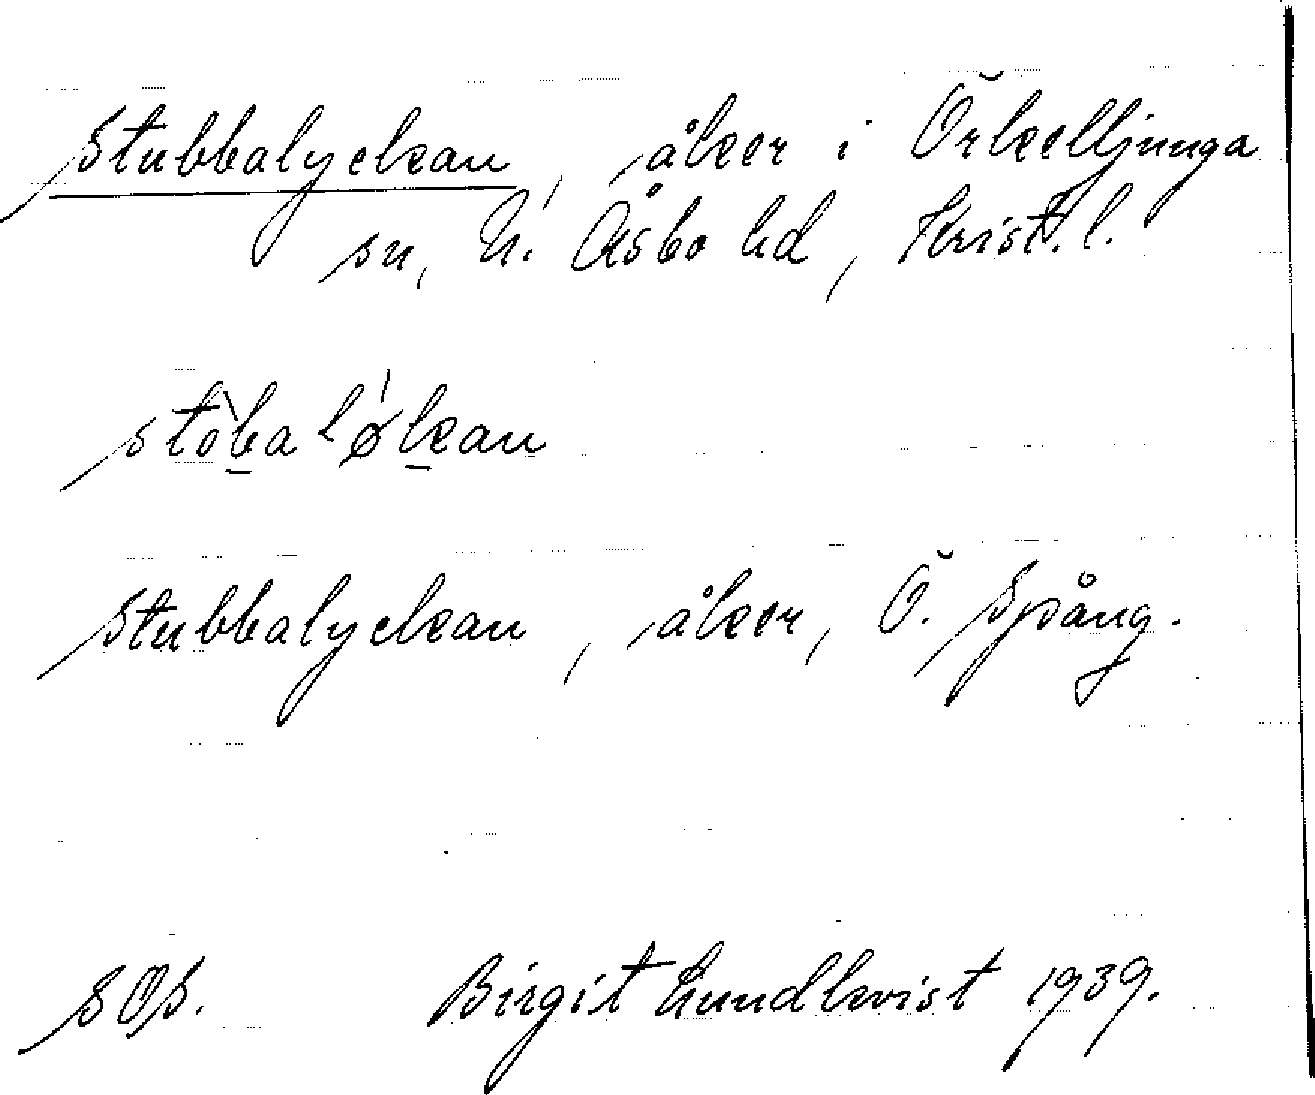 Stubbalyckan, åker i Örkelljunga
sn, N. Åsbo hd, Krist. l.
stòba lǿkan
Stubbalyckan, åker, Ö. Spång.
SOS. Birgit Lundkvist 1939.